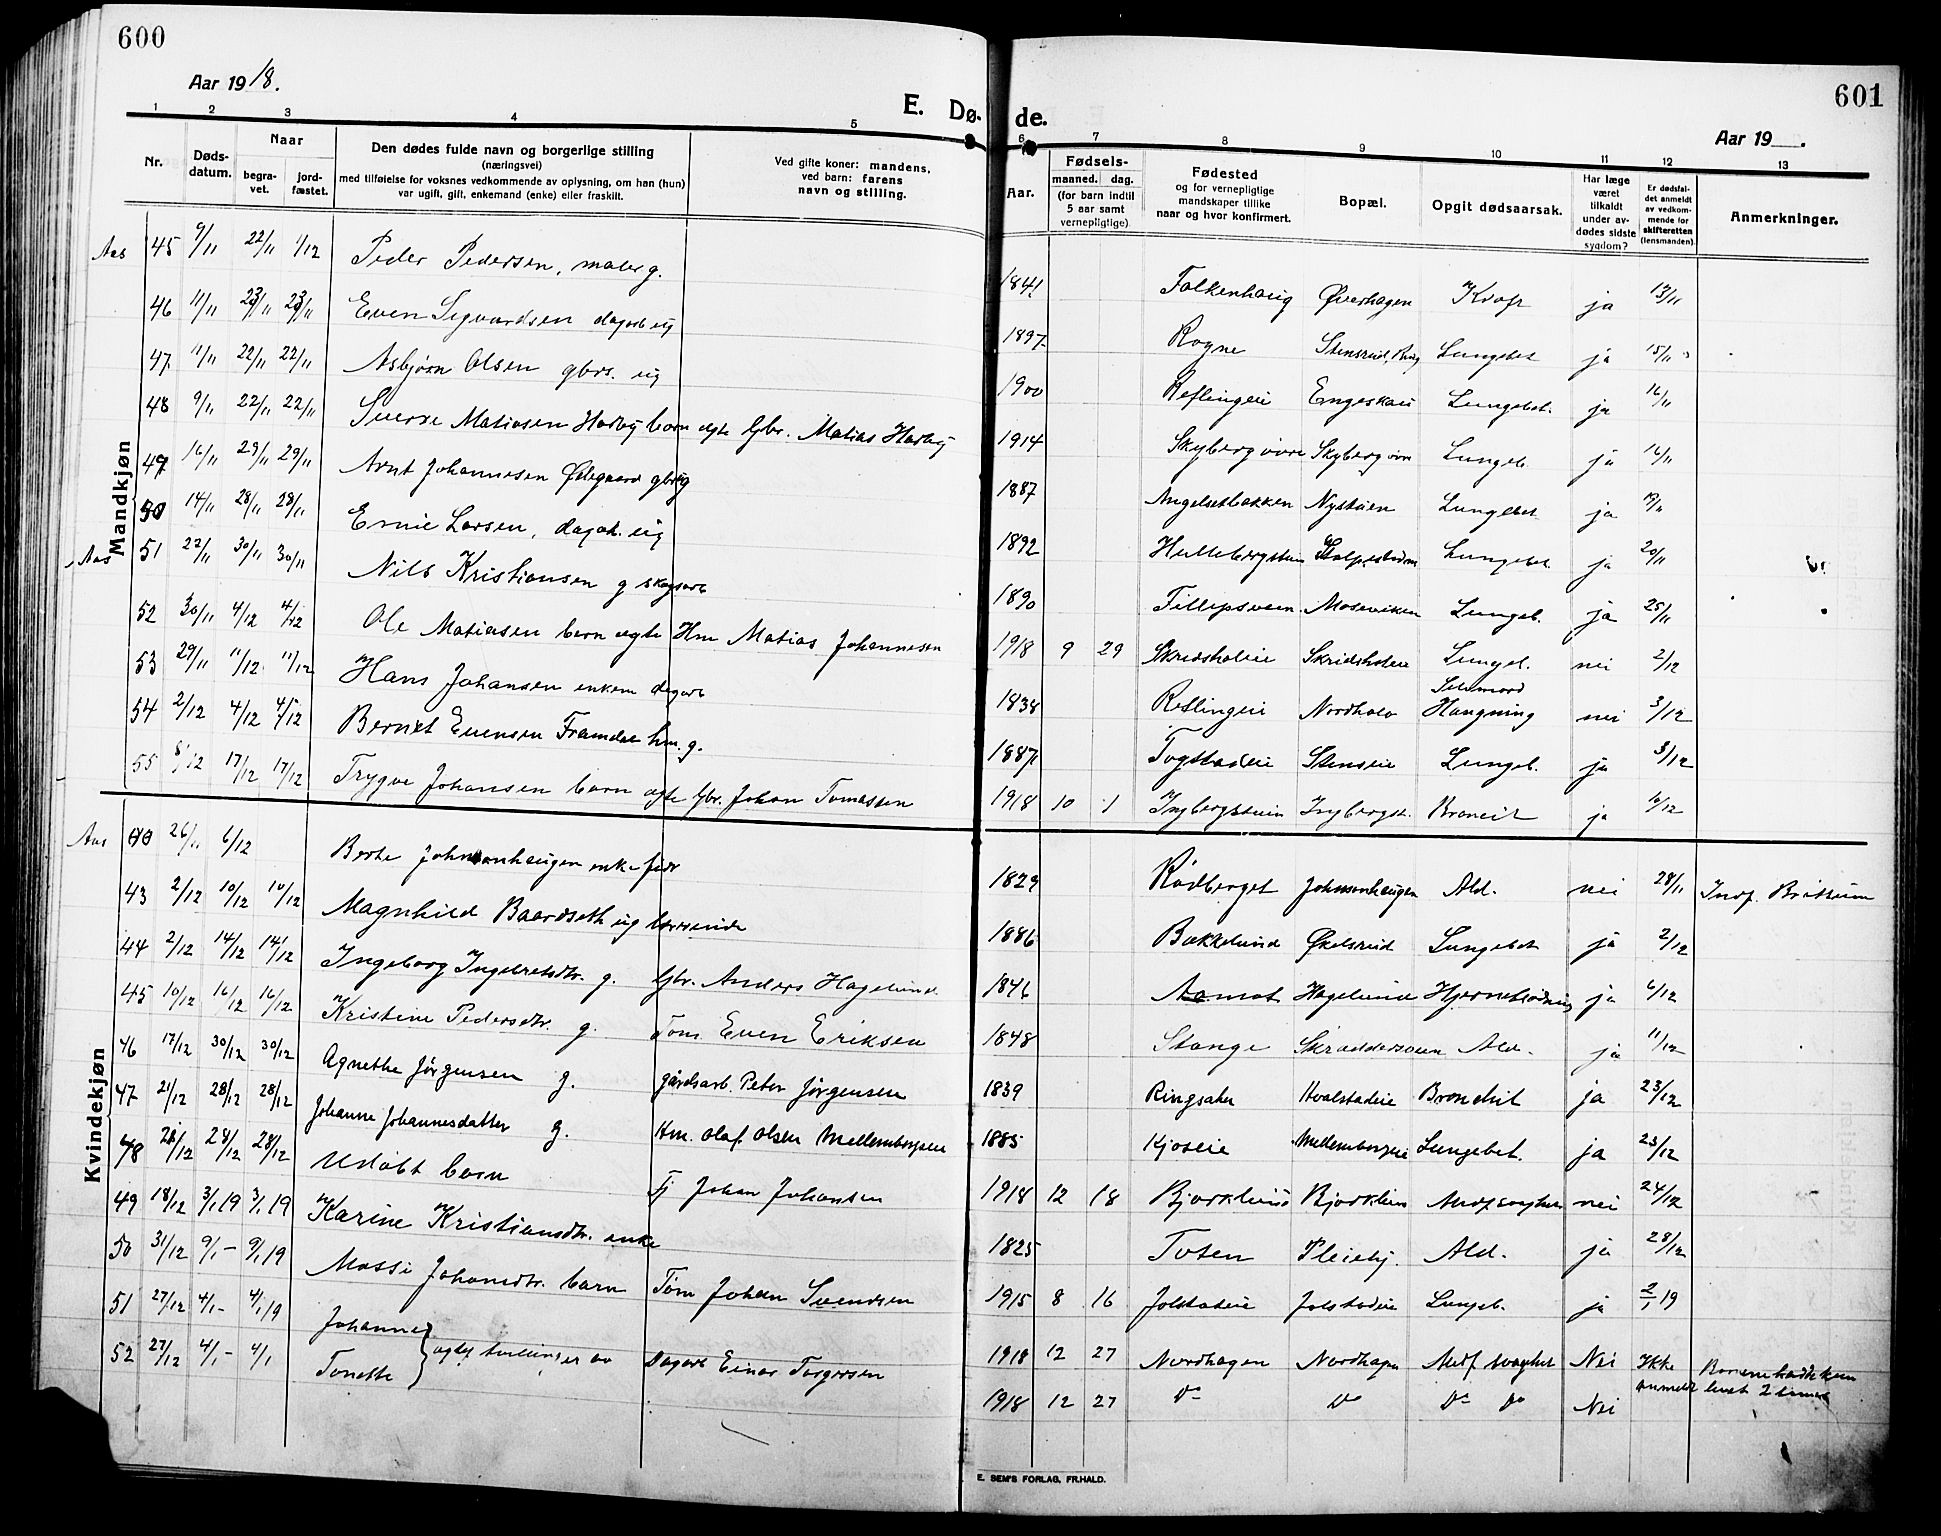 600
601
Aar 1918.
E. Døde.
Aar 19 .
1 2 3 4 5 6 7 8 9 10 11 12 13
Nr.
Døds-datum.
Naar
begra-vet.
jord-fæstet.
Den dødes fulde navn og borgerlige stilling
(næringsvei)
med tilføielse for voksnes vedkommende av oplysning, om han (hun)
var ugift, gift, enkemand (enke) eller fraskilt.
Ved gifte koner: mandens,
ved barn: farens
navn og stilling.
Aar.
Fødsels-
maaned. dag.
(for barn indtil
5 aar samt
vernepligtige)
Fødested
og for vernepligtige
mandskaper tillike
naar og hvor konfirmert.
Bopæl.
Opgit dødsaarsak.
Har læge
været
tilkaldt
under av-
dødes sidste
sygdom?
Er dødsfal-
det anmeldt
av vedkom-
mende for
skifteretten
(lensmanden).
Anmerkninger.
Mandkjøn
Aas 45 9/11 22/11 1/12 Peder Pedersen, maler g. 1841 Falkenhaug Øverhagen Kræft ja 13/11
46 11/11 23/11 23/11 Even Sigvardsen dagarb ug 1897 Rogne Stensrud, Ring Lungebet ja 15/11
47. 11/11 22/11 22/11 Asbjørn Olsen gbrs. ug 1900 Reflingeie Engeskau Lungebet. ja 16/11
48 9/11 22/11 22/11 Sverre Matiasen Hørby barn egte Gbr. Matias Hørby 1914 Skyberg øvre Skyberg øvre Lungeb. ja 16/11
49 16/11 29/11 29/11 Arnt Johannesen Ødegaard gbr ug 1887 Angelsetbakken Nystuen Lungebet. ja 19/11
50 14/11 28/11 28/11 Ernie Larsen, dagarb. ug 1892 Hullebergstuen Lungebet. ja 20/11
Aas 51 22/11 30/11 30/11 Nils Kristiansen g skogsarb 1890 Fillipsveen Moseviken Lungeb. ja 25/11
52 30/11 4/12 4/12 Ole Matiasen barn egte Hm Matias Johannesen 1918 9 29 Skridsholeie Skridsholeie Lungeb. nei 2/12
53 29/11 11/12 11/12 Hans Johansen enkem dagarb 1838 Reflingeie Nordhølo Selvmord Hængning nei 3/12
54 2/12 4/12 4/12 Bernt Evensen Framdal hm. g. 1887 Togstadeie Stenseie Lungeb. ja 3/12
55 8/12 17/12 17/12 Trygve Johansen barn egte Gbr. Johan Tomassen 1918 10 1 Ingbergstuen Ingbergst. Bronkit ja 10/12
Kvindekjøn
Aas 26/11 6/12 Berte Johnsonhaugen enke fødr 1829 Rødberget Johnsonhaugen Ald. nei 28/11 Indf. Brøttum
43 2/12 10/12 10/12 Magnhild Baardseth ug lærerinde 1886 Bækkelund Økelsrud Lungebet ja 2/12
44 2/12 14/12 14/12 Ingeborg Ingebretsdtr. g. Gbr. Anders Hagelund 1846 Aamot Hagelund Hjerneblødning ja 6/12
45 10/12 16/12 16/12 Kristine Pedersdtr. g. Tøm. Even Eriksen 1848 Stange Skræddersveen Ald. ja 11/12
46 17/12 30/12 30/12 Agnethe Jørgensen g. gårdsarb. Peter Jørgensen 1839 Ringsaker Hvalstadeie Bronchit ja 23/12
47 21/12 28/12 28/12 Johanne Johannesdatter g. Hm. Olaf Olsen Mellembergseie 1885 Kjoseie Mellembergseie Lungebet. ja 23/12
48 21/12 28/12 28/12 Udøbt barn Tj Johan Johansen 1918 12 18 Bjørklund Bjørklund Medf. svaghet nei 24/12
49 18/12 3/1 19 3/1 19 Karine Kristiansdtr. enke 1825 Toten Pleiehj. Ald. ja 28/12
50 31/12 9/1 – 9/1 19 Massi Johansdtr. barn Tøm Johan Svendsen 1915 8 16 Jølstadeie Jølstadeie Lungeb. ja 2/1 19
51 27/12 4/1 – 4/1 19 Johanne } egtef tvillinger av Dagarb Einar Torgersen 1918 12 27 Nordhagen Nordhagen Medf. svaghet Nei Ikke anmeldt Barnene hadde kun levet 2 timer
52 27/12 4/1 – 4/1 Tonette 1918 12 27 Do Do Do Do Nei
E. SEM'S FORLAG, FR.HALD.